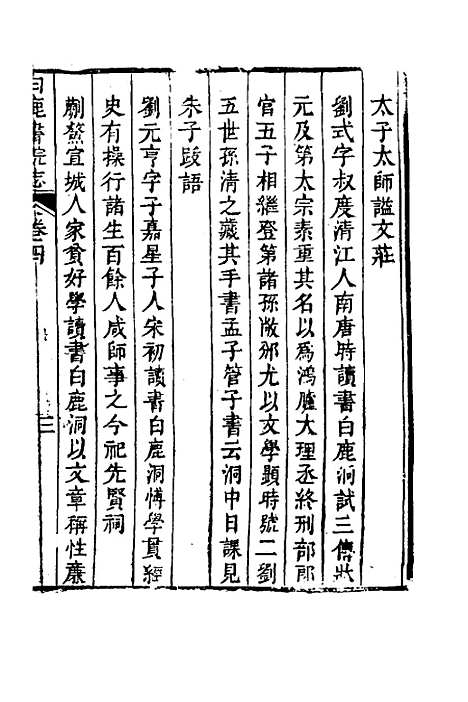 太子太師謚文莊
劉式字叔度清江人南唐時讀書白鹿洞試三傳狀
元及第太宗素重其名以爲鴻臚大理丞終刑部郎
官五子相繼登第諸孫敞邠尤以文學顯時號二劉
五世孫清之藏其手書孟子管子書云洞中日課見
朱子跋語
劉元亨字子嘉星子人宋初讀書白鹿洞博學貫經
史有操行諸生百餘人咸師事之今祀先賢祠
蒯鰲宣城人家貧好學讀書白鹿洞以文章稱性廉
白鹿書院志 卷四 三